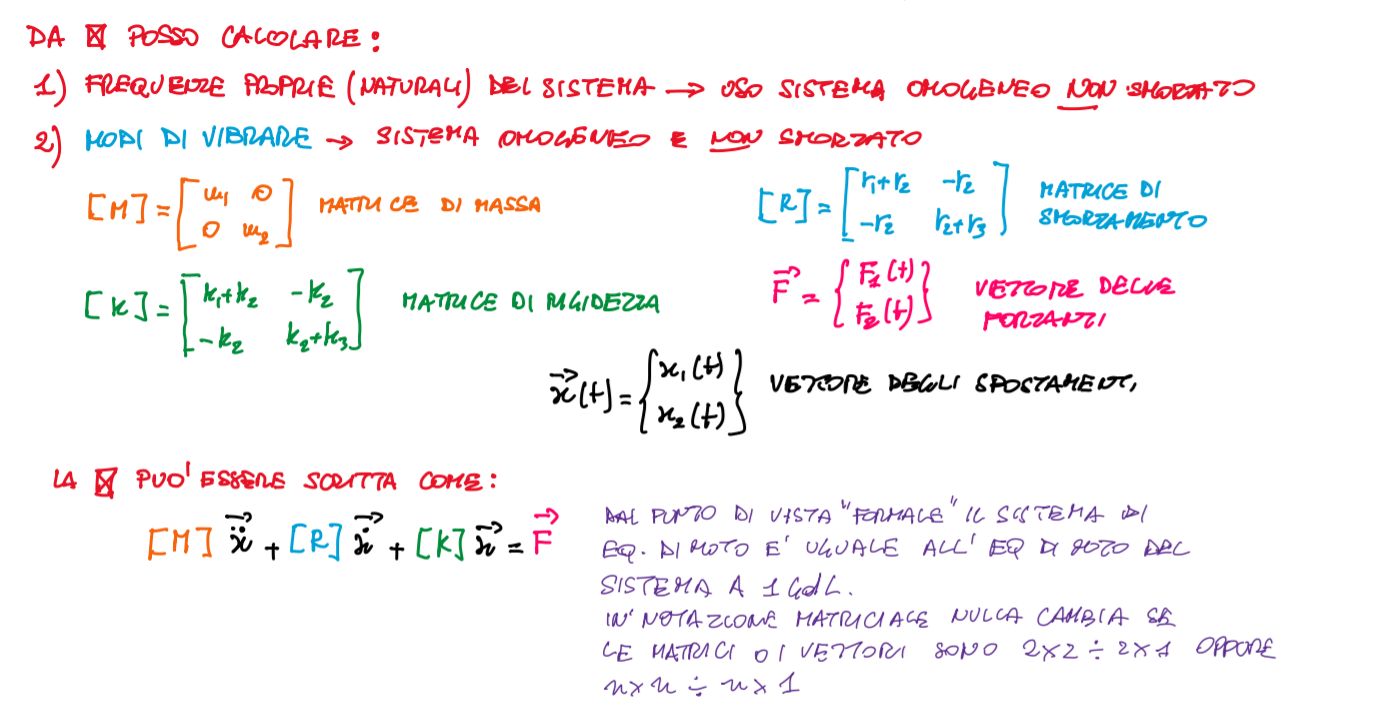 DA ⊠ POSSO CALCOLARE:
1) FREQUENZE PROPRIE (NATURALI) DEL SISTEMA → USO SISTEMA OMOGENEO NON SMORZATO
2) MODI DI VIBRARE → SISTEMA OMOGENEO E NON SMORZATO
[M] = [m₁ 0; 0 m₂] MATRICE DI MASSA
[R] = [r₁+r₂ -r₂; -r₂ r₂+r₃] MATRICE DI
SMORZAMENTO
[K] = [k₁+k₂ -k₂; -k₂ k₂+k₃] MATRICE DI RIGIDEZZA
F⃗ = {F₁(t); F₂(t)} VETTORE DELLE
FORZANTI
x⃗(t) = {x₁(t); x₂(t)} VETTORE DEGLI SPOSTAMENTI
LA ⊠ PUO' ESSERE SCRITTA COME:
[M] ẍ⃗ + [R] ẋ⃗ + [K] x⃗ = F⃗
DAL PUNTO DI VISTA "FORMALE" IL SISTEMA DI
EQ. DI MOTO E' UGUALE ALL' EQ DI MOTO DEL
SISTEMA A 1 GdL.
IN NOTAZIONE MATRICIALE NULLA CAMBIA SE
LE MATRICI O I VETTORI SONO 2×2 ÷ 2×1 OPPURE
n×n ÷ n×1